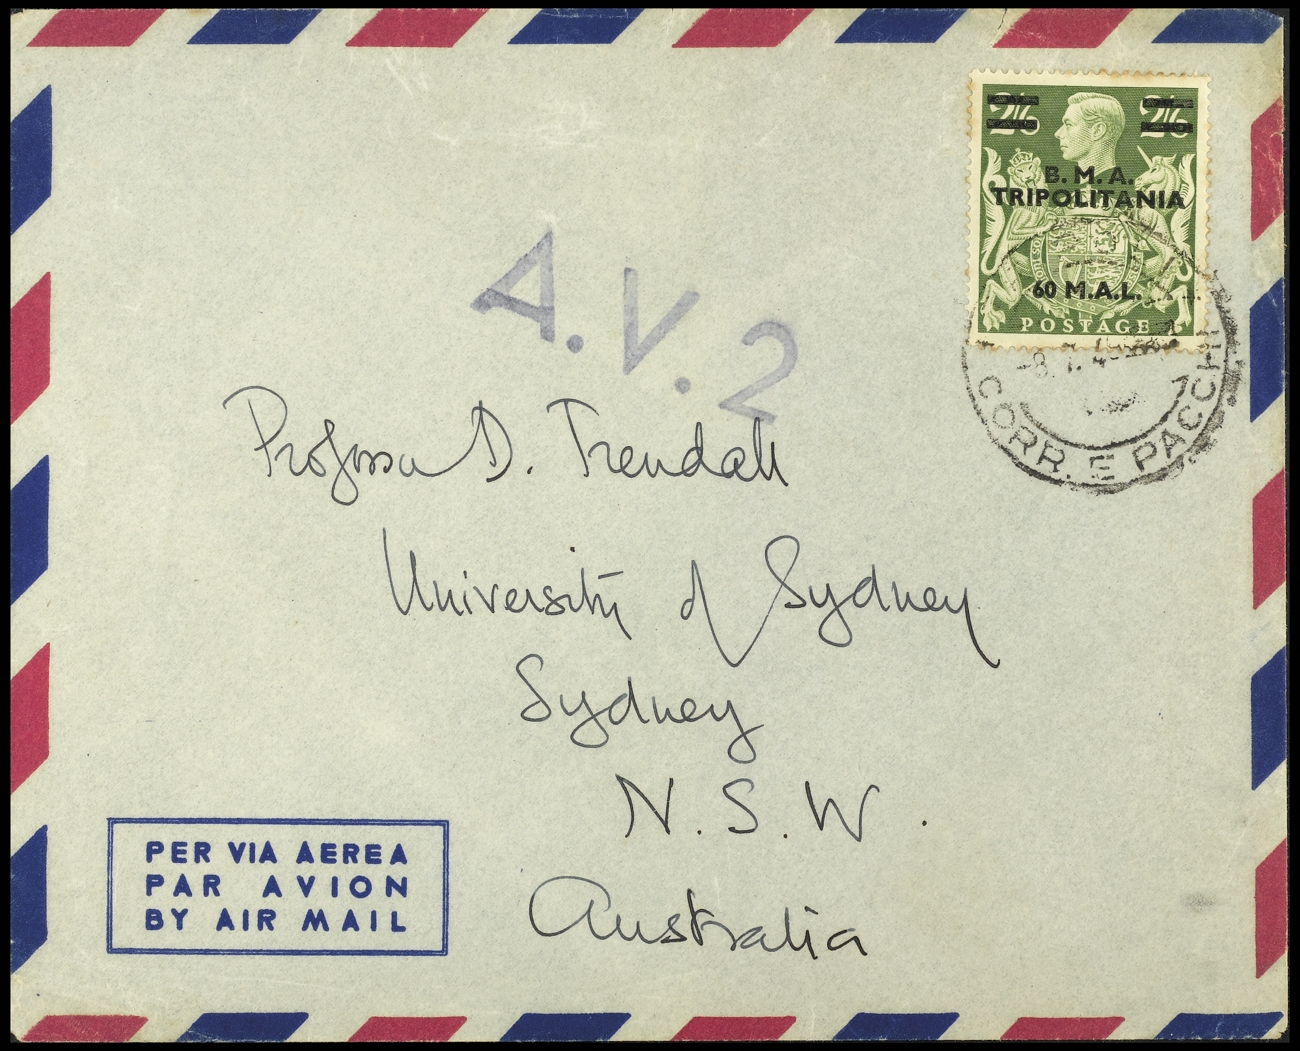 2/6 2/6
B. M. A.
TRIPOLITANIA
60 M.A.L.
POSTAGE
CORR. E PACCHI
A.V.2
Professor D. Trendall
University of Sydney
Sydney
N. S. W.
Australia
PER VIA AEREA
PAR AVION
BY AIR MAIL